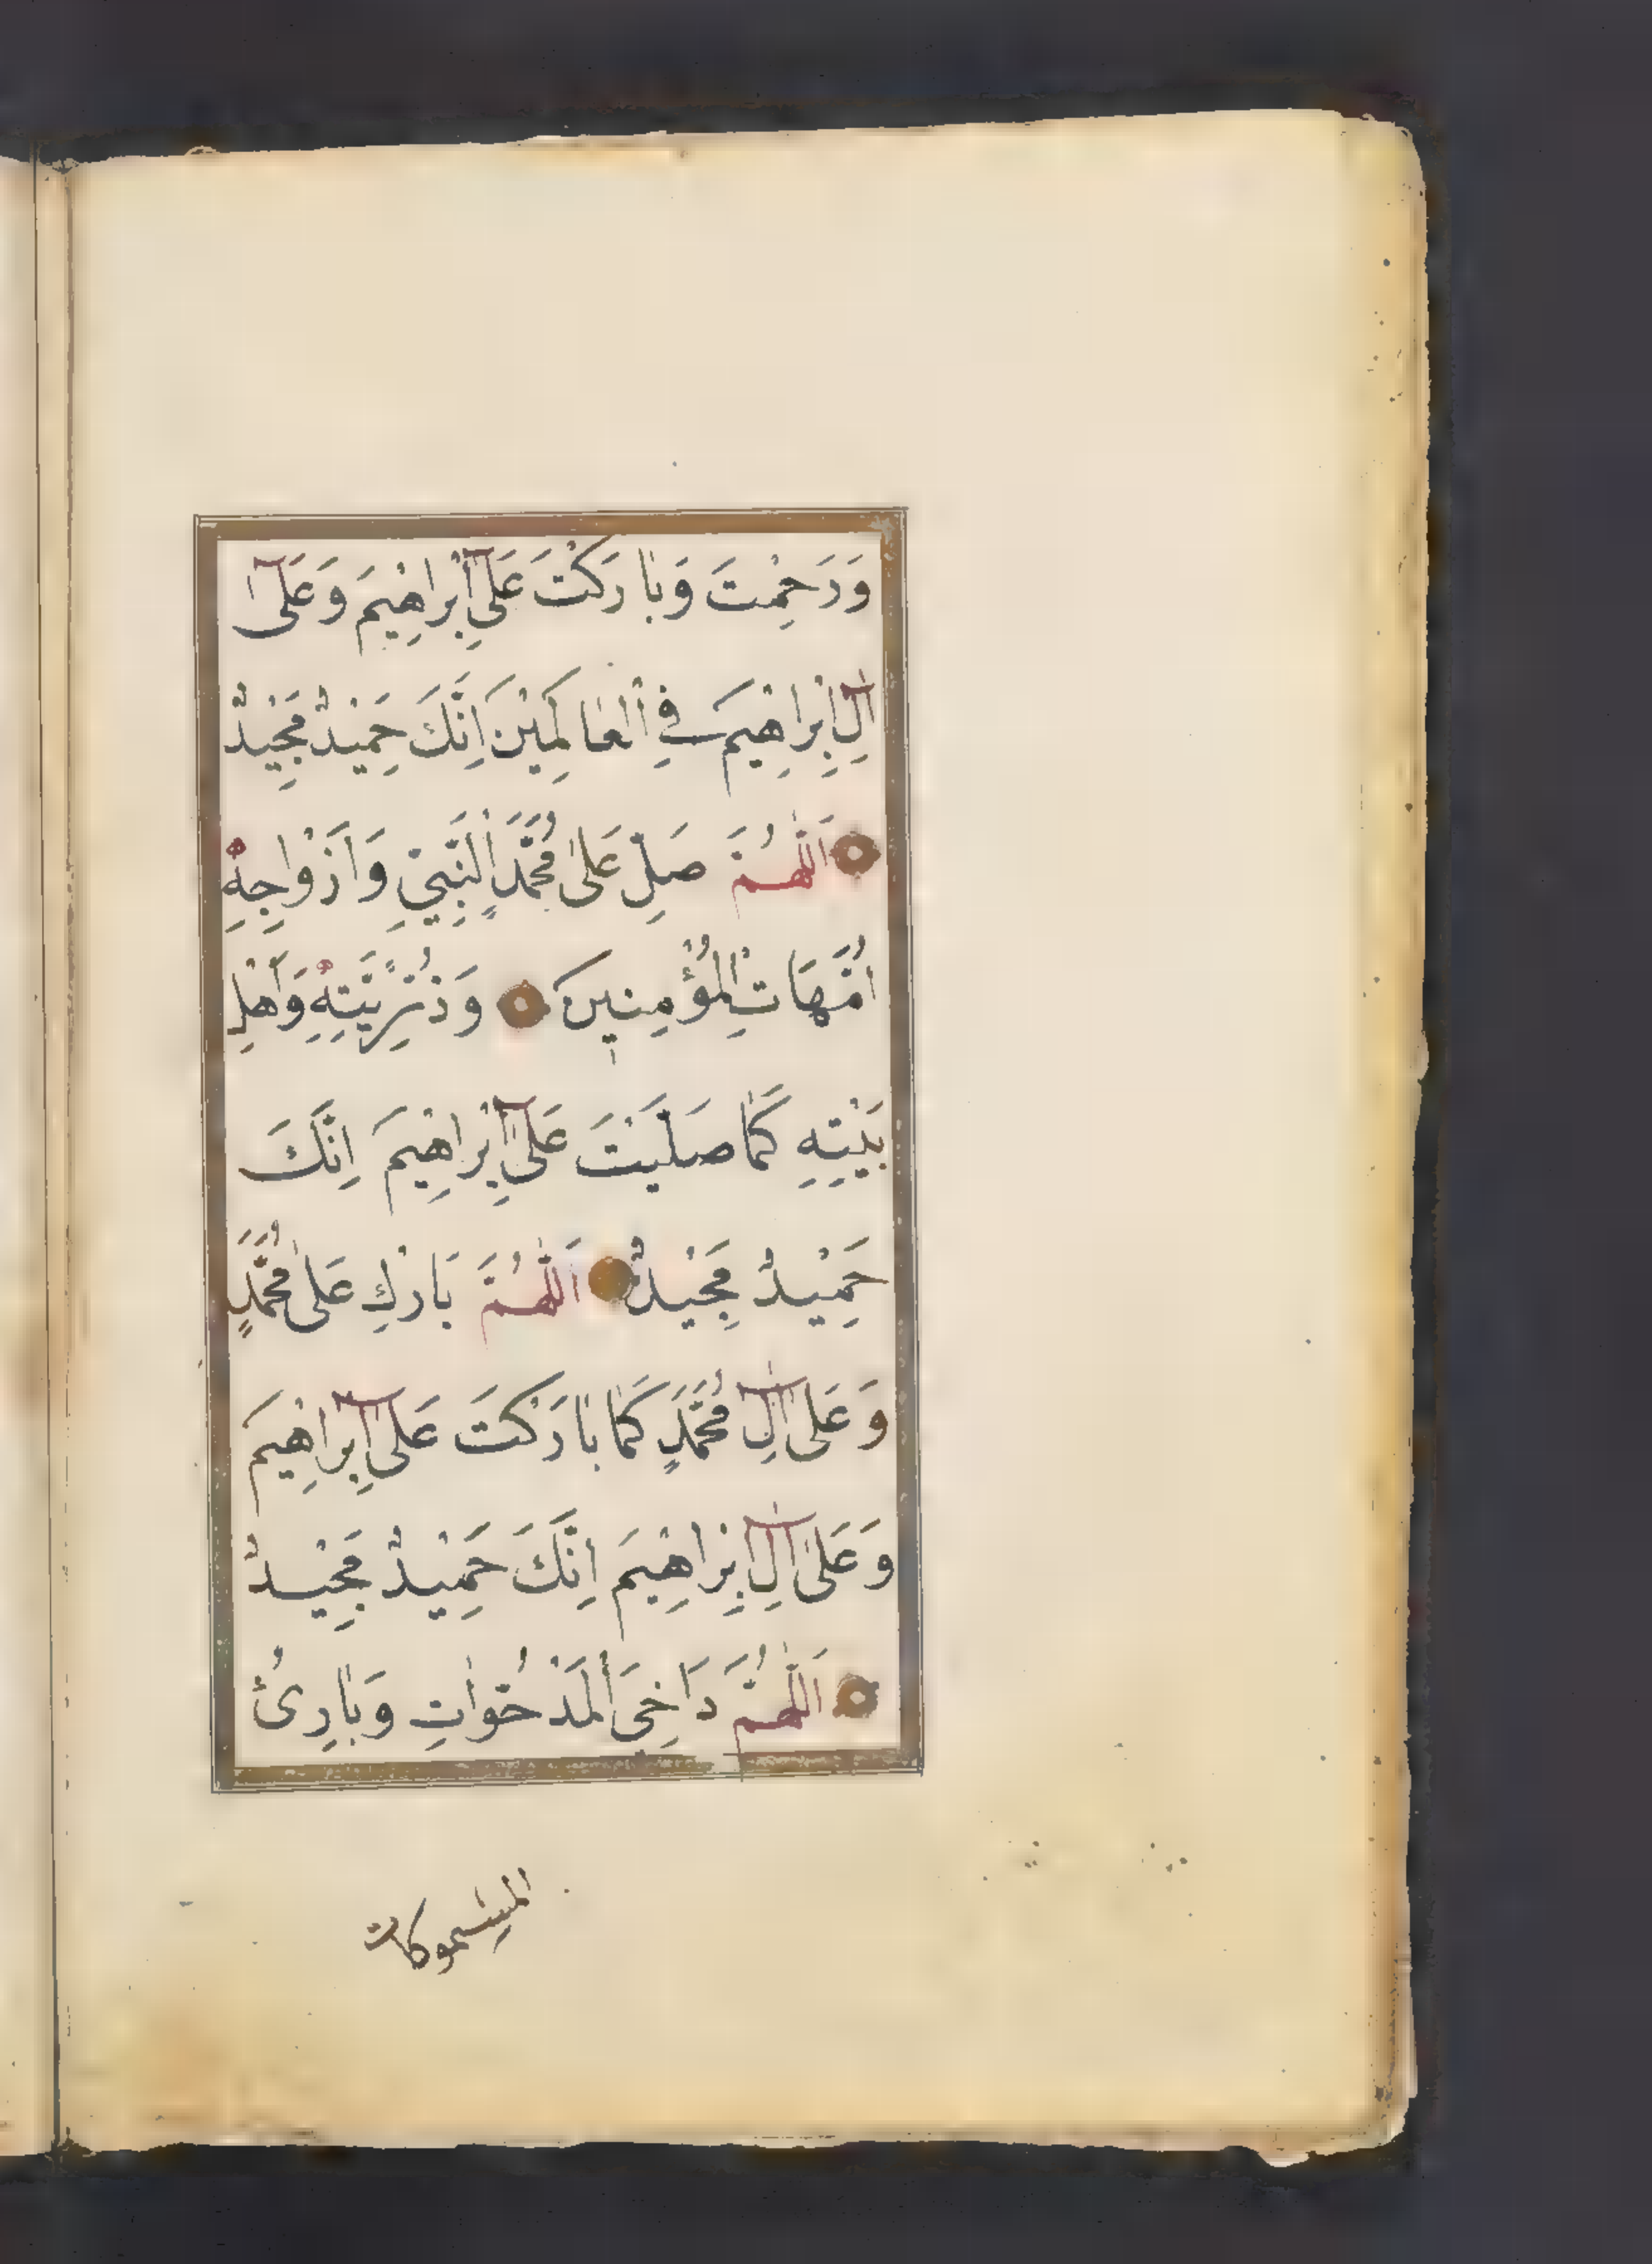 وَرَحِمْتَ وَبَارَكْتَ عَلَى إِبْرَاهِيمَ وَعَلَى
آلِ إِبْرَاهِيمَ فِي الْعَالَمِيْنَ اِنَّكَ حَمِيْدٌ مَجِيْدٌ
اَللّٰهُمَّ صَلِّ عَلَى مُحَمَّدٍ النَّبِيِّ وَاَزْوَاجِهِ
اُمَّهَاتِ الْمُؤْمِنِينَ وَذُرِّيَّتِهِ وَاَهْلِ
بَيْتِهِ كَمَا صَلَّيْتَ عَلَى اِبْرَاهِيمَ اِنَّكَ
حَمِيْدٌ مَجِيْدٌ اَللّٰهُمَّ بَارِكْ عَلَى مُحَمَّدٍ
وَعَلَى آلِ مُحَمَّدٍ كَمَا بَارَكْتَ عَلَى اِبْرَاهِيمَ
وَعَلَى آلِ اِبْرَاهِيْمَ اِنَّكَ حَمِيْدٌ مَجِيْدٌ
اَللّٰهُمَّ دَاحِيَ الْمَدْحُوَّاتِ وَبَارِئَ
المسموكات